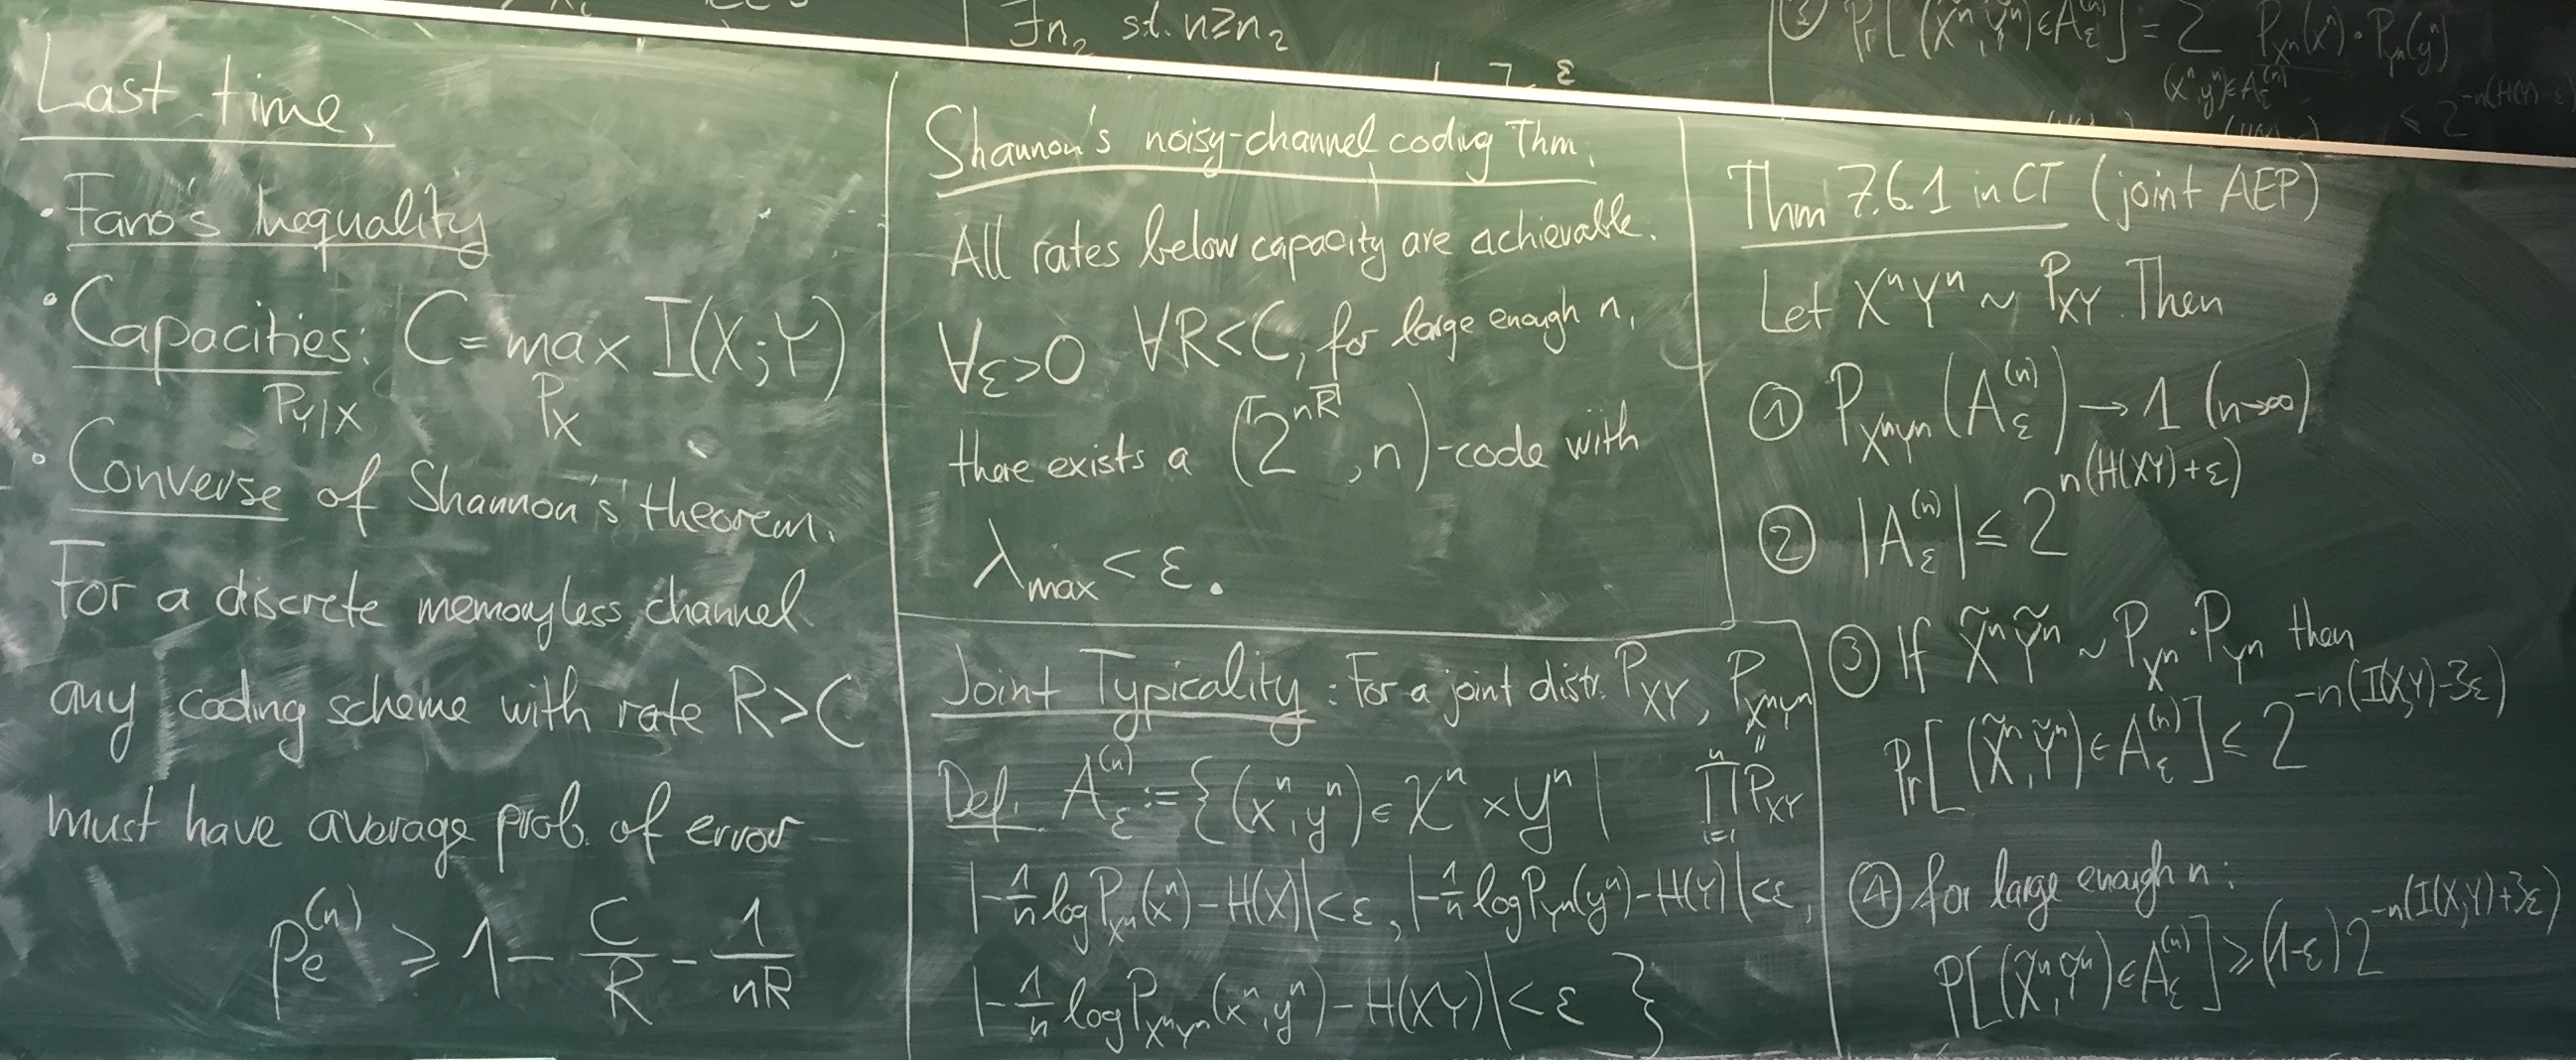 ∃n₂ s.t. n≥n₂
ε
② Pr[(X̃ⁿ,Ỹⁿ)∈A_ε^(n)] = Σ_{(xⁿ,yⁿ)∈A_ε^(n)} P_{Xⁿ}(xⁿ)·P_{Yⁿ}(yⁿ)
≤ 2^{-n(H(Y)-ε)}
Last time,
· Fano's Inequality
· Capacities: C = max I(X;Y)
P_{Y|X} P_X
· Converse of Shannon's theorem.
For a discrete memoryless channel
any coding scheme with rate R>C
must have average prob. of error
p_e^(n) ≥ 1 - C/R - 1/(nR)
Shannon's noisy-channel coding Thm.
All rates below capacity are achievable.
∀ε>0 ∀R<C, for large enough n,
there exists a (2^⌈nR⌉, n)-code with
λ_max < ε.
Joint Typicality: For a joint distr. P_{XY}, P_{XⁿYⁿ}
= ∏_{i=1}^n P_{XY}
Def. A_ε^(n) := {(xⁿ,yⁿ) ∈ 𝒳ⁿ × 𝒴ⁿ |
|-1/n log P_{Xⁿ}(xⁿ) - H(X)| < ε, |-1/n log P_{Yⁿ}(yⁿ) - H(Y)| < ε,
|-1/n log P_{XⁿYⁿ}(xⁿ,yⁿ) - H(XY)| < ε }
Thm 7.6.1 in CT (joint AEP)
Let XⁿYⁿ ~ P_{XY}. Then
① P_{XⁿYⁿ}(A_ε^(n)) → 1 (n→∞)
② |A_ε^(n)| ≤ 2^{n(H(XY)+ε)}
③ If X̃ⁿỸⁿ ~ P_{Xⁿ}·P_{Yⁿ} then
Pr[(X̃ⁿ,Ỹⁿ) ∈ A_ε^(n)] ≤ 2^{-n(I(X;Y)-3ε)}
④ for large enough n:
P[(X̃ⁿ,Ỹⁿ) ∈ A_ε^(n)] ≥ (1-ε) 2^{-n(I(X;Y)+3ε)}